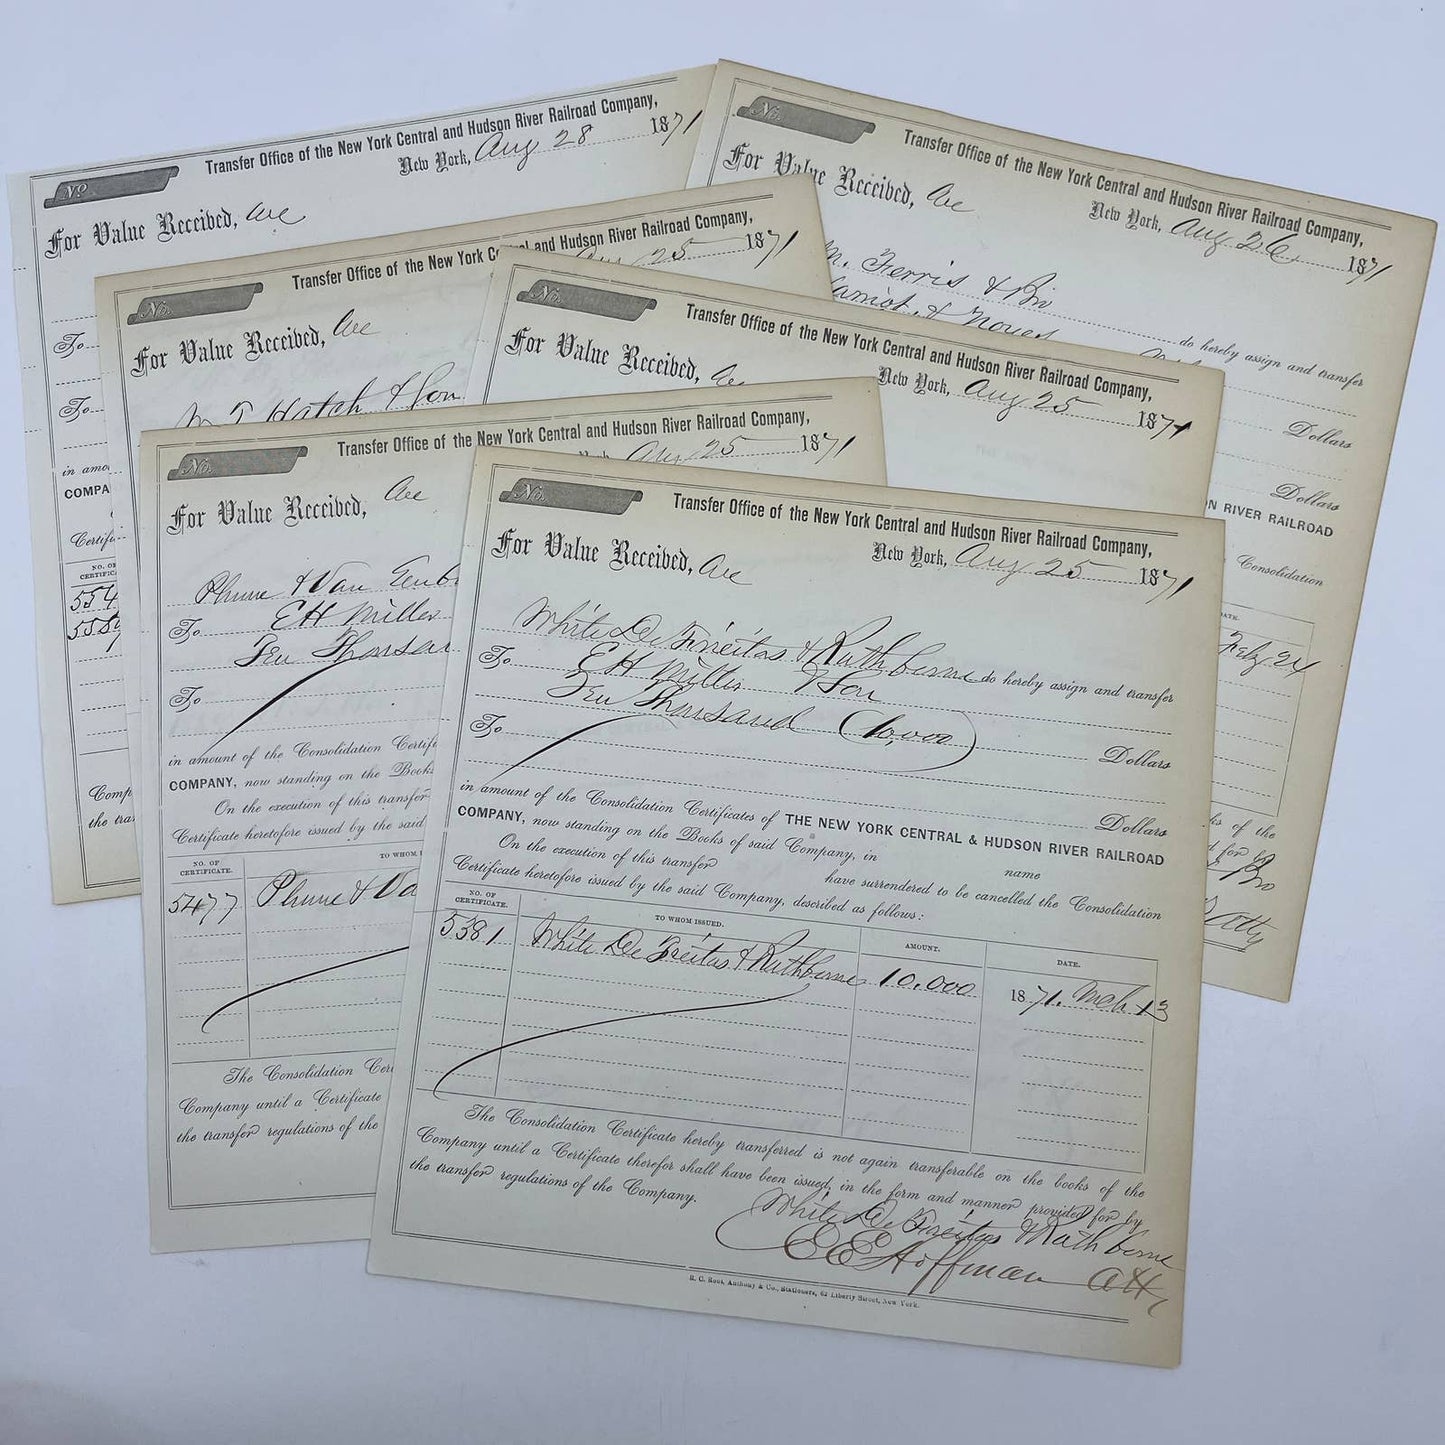 Transfer Office of the New York Central and Hudson River Railroad Company,
No.
New York, Aug 28 1871
For Value Received,
To
To
in amo
COMPA
Certifi
NO. OF
CERTIFIC
554
Comp
the tra
No.
Transfer Office of the New York Central and Hudson River Railroad Company,
New York, Aug 26 1871
For Value Received,
M. Ferris & Bro
do hereby assign and transfer
Dollars
Dollars
N RIVER RAILROAD
Consolidation
DATE.
Feby 24
ks of the
d for by
& Bro
Atty
Transfer Office of the New Yo and Hudson River Railroad Company,
No.
Aug 25 1871
For Value Received,
Hatch & Son
No.
Transfer Office of the New York Central and Hudson River Railroad Company,
New York, Aug 25 1871
For Value Received,
Transfer Office of the New York Central and Hudson River Railroad Company,
No.
Aug 25 1871
For Value Received,
To E H Miller
Ten Thousan
To
in amount of the Consolidation Certif
COMPANY, now standing on the Book
On the execution of this transfer
Certificate heretofore issued by the said
NO. OF
CERTIFICATE.
TO WHOM I
5477
The Consolidation Cer
Company until a Certificate
the transfer regulations of the
No.
Transfer Office of the New York Central and Hudson River Railroad Company,
New York, Aug 25 1871
For Value Received,
White De Freitas & Rathborne do hereby assign and transfer
To E H Miller & Son
Ten Thousand (10,000) Dollars
To
Dollars
in amount of the Consolidation Certificates of THE NEW YORK CENTRAL & HUDSON RIVER RAILROAD
COMPANY, now standing on the Books of said Company, in name
On the execution of this transfer have surrendered to be cancelled the Consolidation
Certificate heretofore issued by the said Company, described as follows:
NO. OF CERTIFICATE. TO WHOM ISSUED. AMOUNT. DATE.
5381 White De Freitas & Rathborne 10.000 1871. Mch 13
The Consolidation Certificate hereby transferred is not again transferable on the books of the
Company until a Certificate therefor shall have been issued, in the form and manner provided for by
the transfer regulations of the Company.
White De Freitas & Rathborne
E E Hoffman Atty
R. C. Root, Anthony & Co., Stationers, 62 Liberty Street, New York.